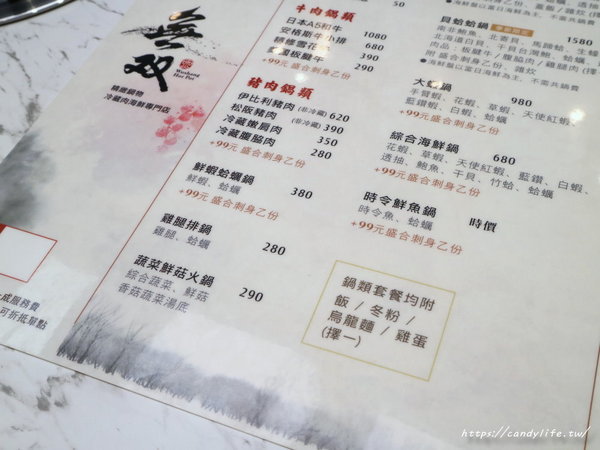 無双
Wushang
Hot Pot
精緻鍋物
冷藏肉海鮮專門店
牛肉鍋類
日本A5和牛 1080
安格斯牛小排 680
390
290
+99元 盛合刺身乙份
豬肉鍋類
伊比利豬肉(非冷藏) 620
松阪豬肉(非冷藏) 390
冷藏嫩肩肉 350
冷藏腹脇肉 280
+99元 盛合刺身乙份
鮮蝦蛤蠣鍋 380
鮮蝦、蛤蠣
+99元 盛合刺身乙份
雞腿排鍋 280
雞腿、蛤蠣
蔬菜鮮菇火鍋 290
綜合蔬菜、鮮菇
香菇蔬菜湯底
50
貝蛤蛤鍋 1580
大蝦鍋 980
手臂蝦、花蝦、草蝦、天使紅蝦、
藍鑽蝦、白蝦、蛤蠣
+99元 盛合刺身乙份
綜合海鮮鍋 680
花蝦、草蝦、天使紅蝦、藍鑽、白蝦、
透抽、鮑魚、干貝、竹蛤、蛤蠣
+99元 盛合刺身乙份
時令鮮魚鍋 時價
時令魚、蛤蠣
+99元 盛合刺身乙份
鍋類套餐均附
飯 / 冬粉 /
烏龍麵 / 雞蛋
(擇一)
一成服務費
可折抵單點
https://candylife.tw/